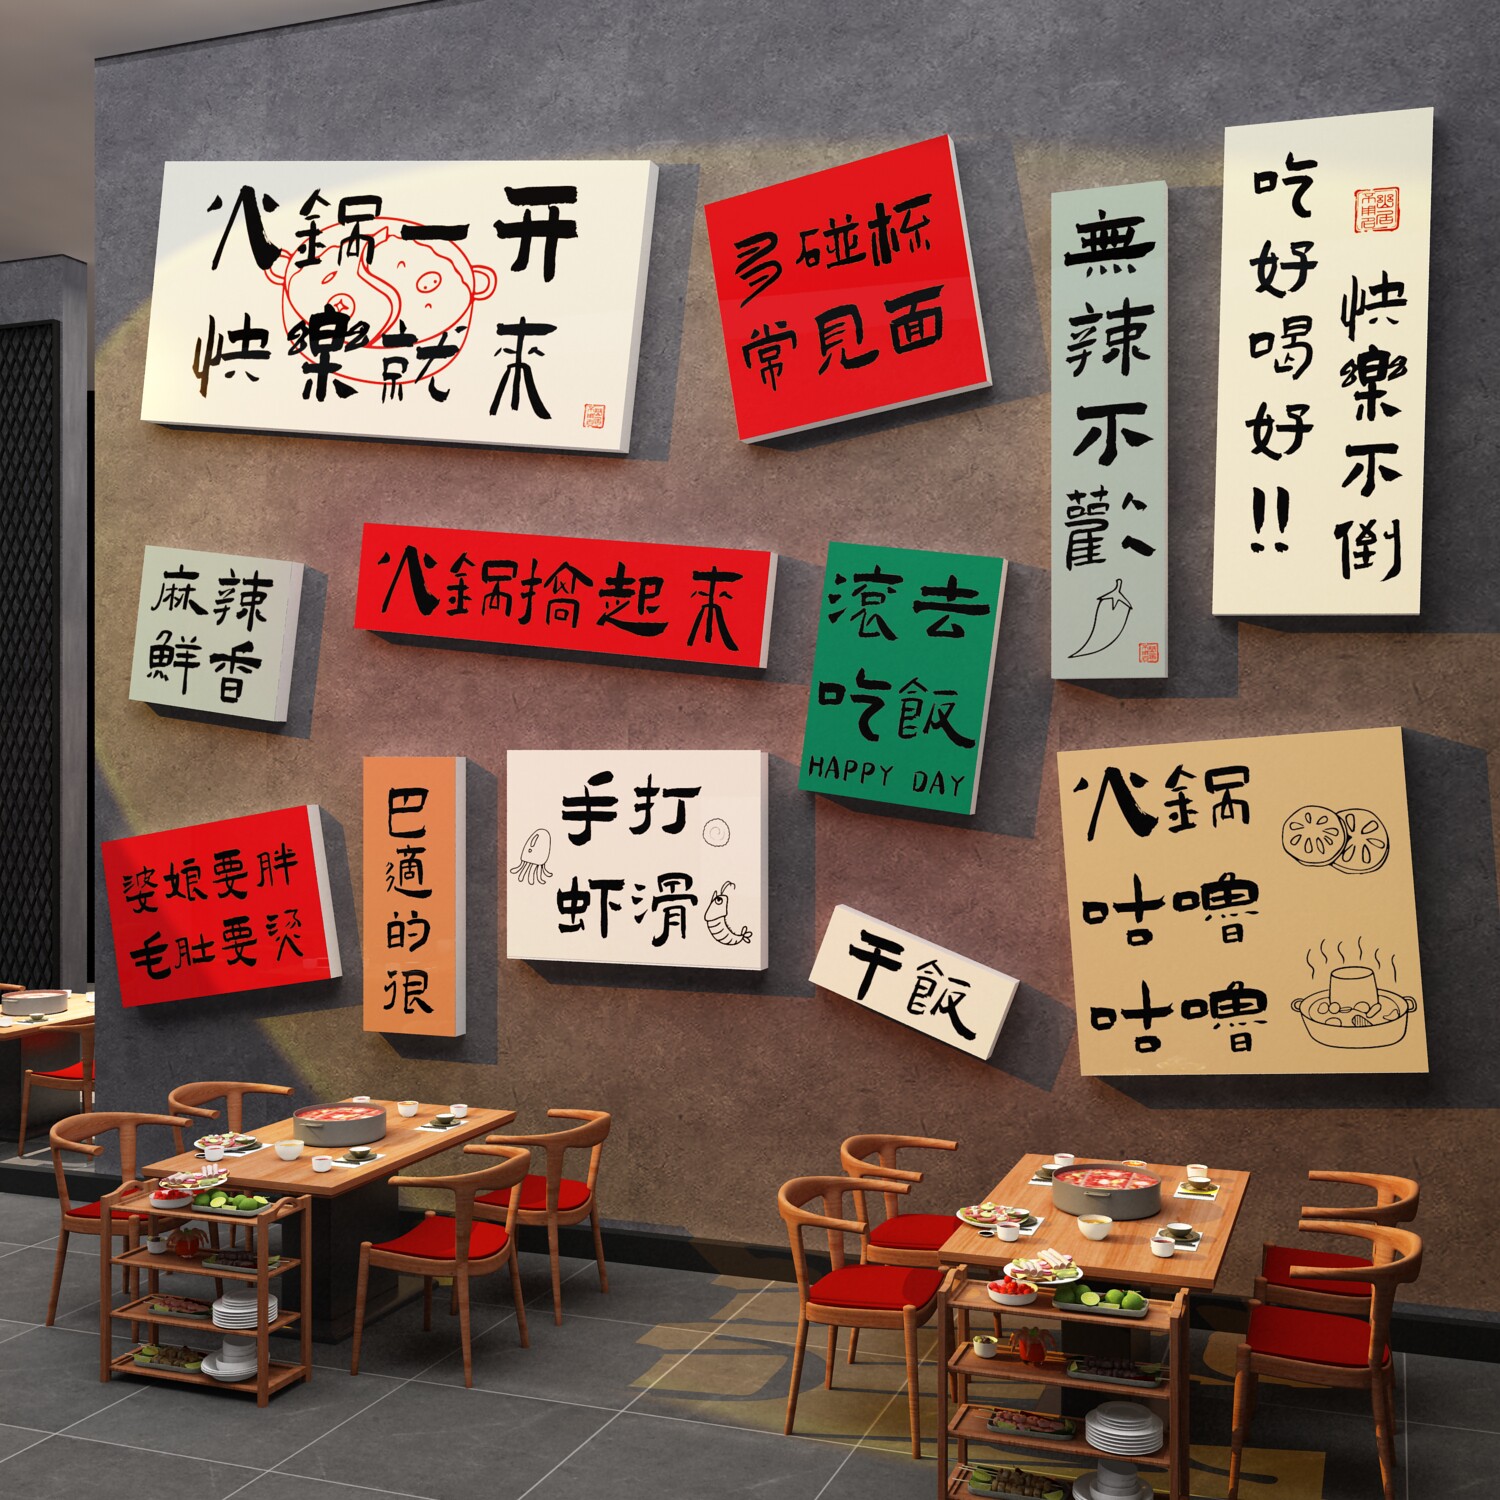 火鍋一开
快樂就来
多碰杯
常見面
無辣不歡
吃好喝好!!
快樂不倒
麻辣
鮮香
火鍋搞起来
滾去
吃飯
HAPPY DAY
婆娘要胖
毛肚要燙
巴適的很
手打
虾滑
干飯
火鍋
咕嚕
咕嚕